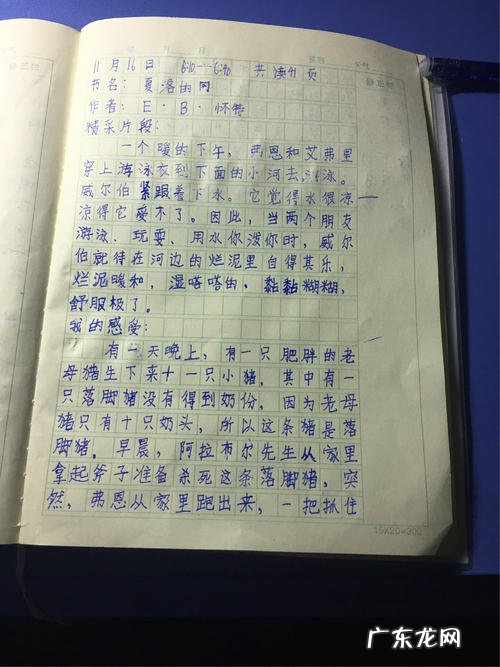 11月16日 6:10—6:40 共读41页
书名：夏洛的网
作者：E·B·怀特
精采片段：
一个暖的下午，弗恩和艾弗里
穿上游泳衣到下面的小河去游泳。
威尔伯紧跟着下水。它觉得水很凉—
凉得它爱不了。因此，当两个朋友
游泳、玩耍、用水你泼你时，威尔
伯就待在河边的烂泥里自得其乐，
烂泥暖和，湿嗒嗒的、黏黏糊糊，
舒服极了。
我的感受：
有一天晚上，有一只肥胖的老
母猪生下来十一只小猪，其中有一
只落脚猪没有得到奶份，因为老母
猪只有十只奶头，所以这条猪是落
脚猪，早晨，阿拉布尔先生从家里
拿起斧子准备杀死这条落脚猪，突
然，弗恩从家里跑出来，一把抓住
15X20=300
广东龙网